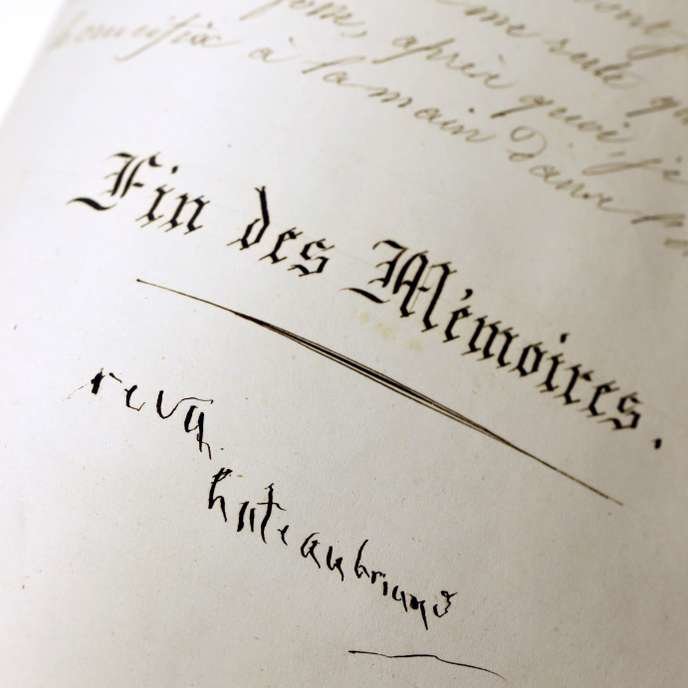 me seule
, après quoi, je
crucifix à la main dans
Fin des Mémoires.
revu
hateaubriand